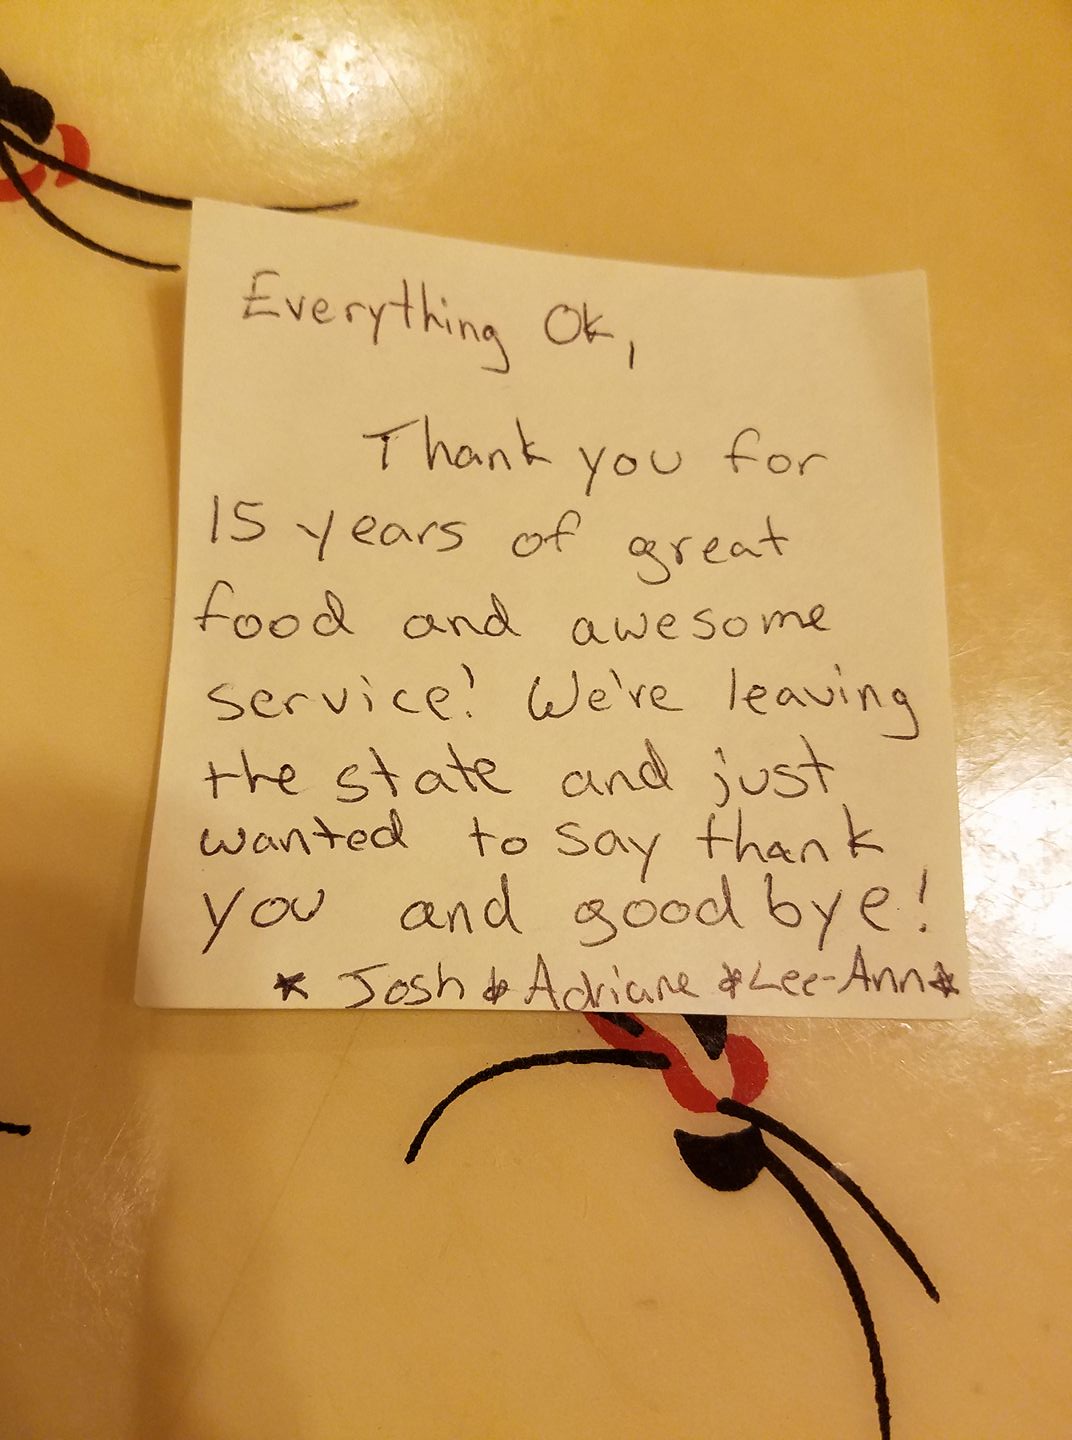 Everything Ok,
Thank you for
15 years of great
food and awesome
service! We're leaving
the state and just
wanted to say thank
you and goodbye!
* Josh * Adriane * Lee-Ann *